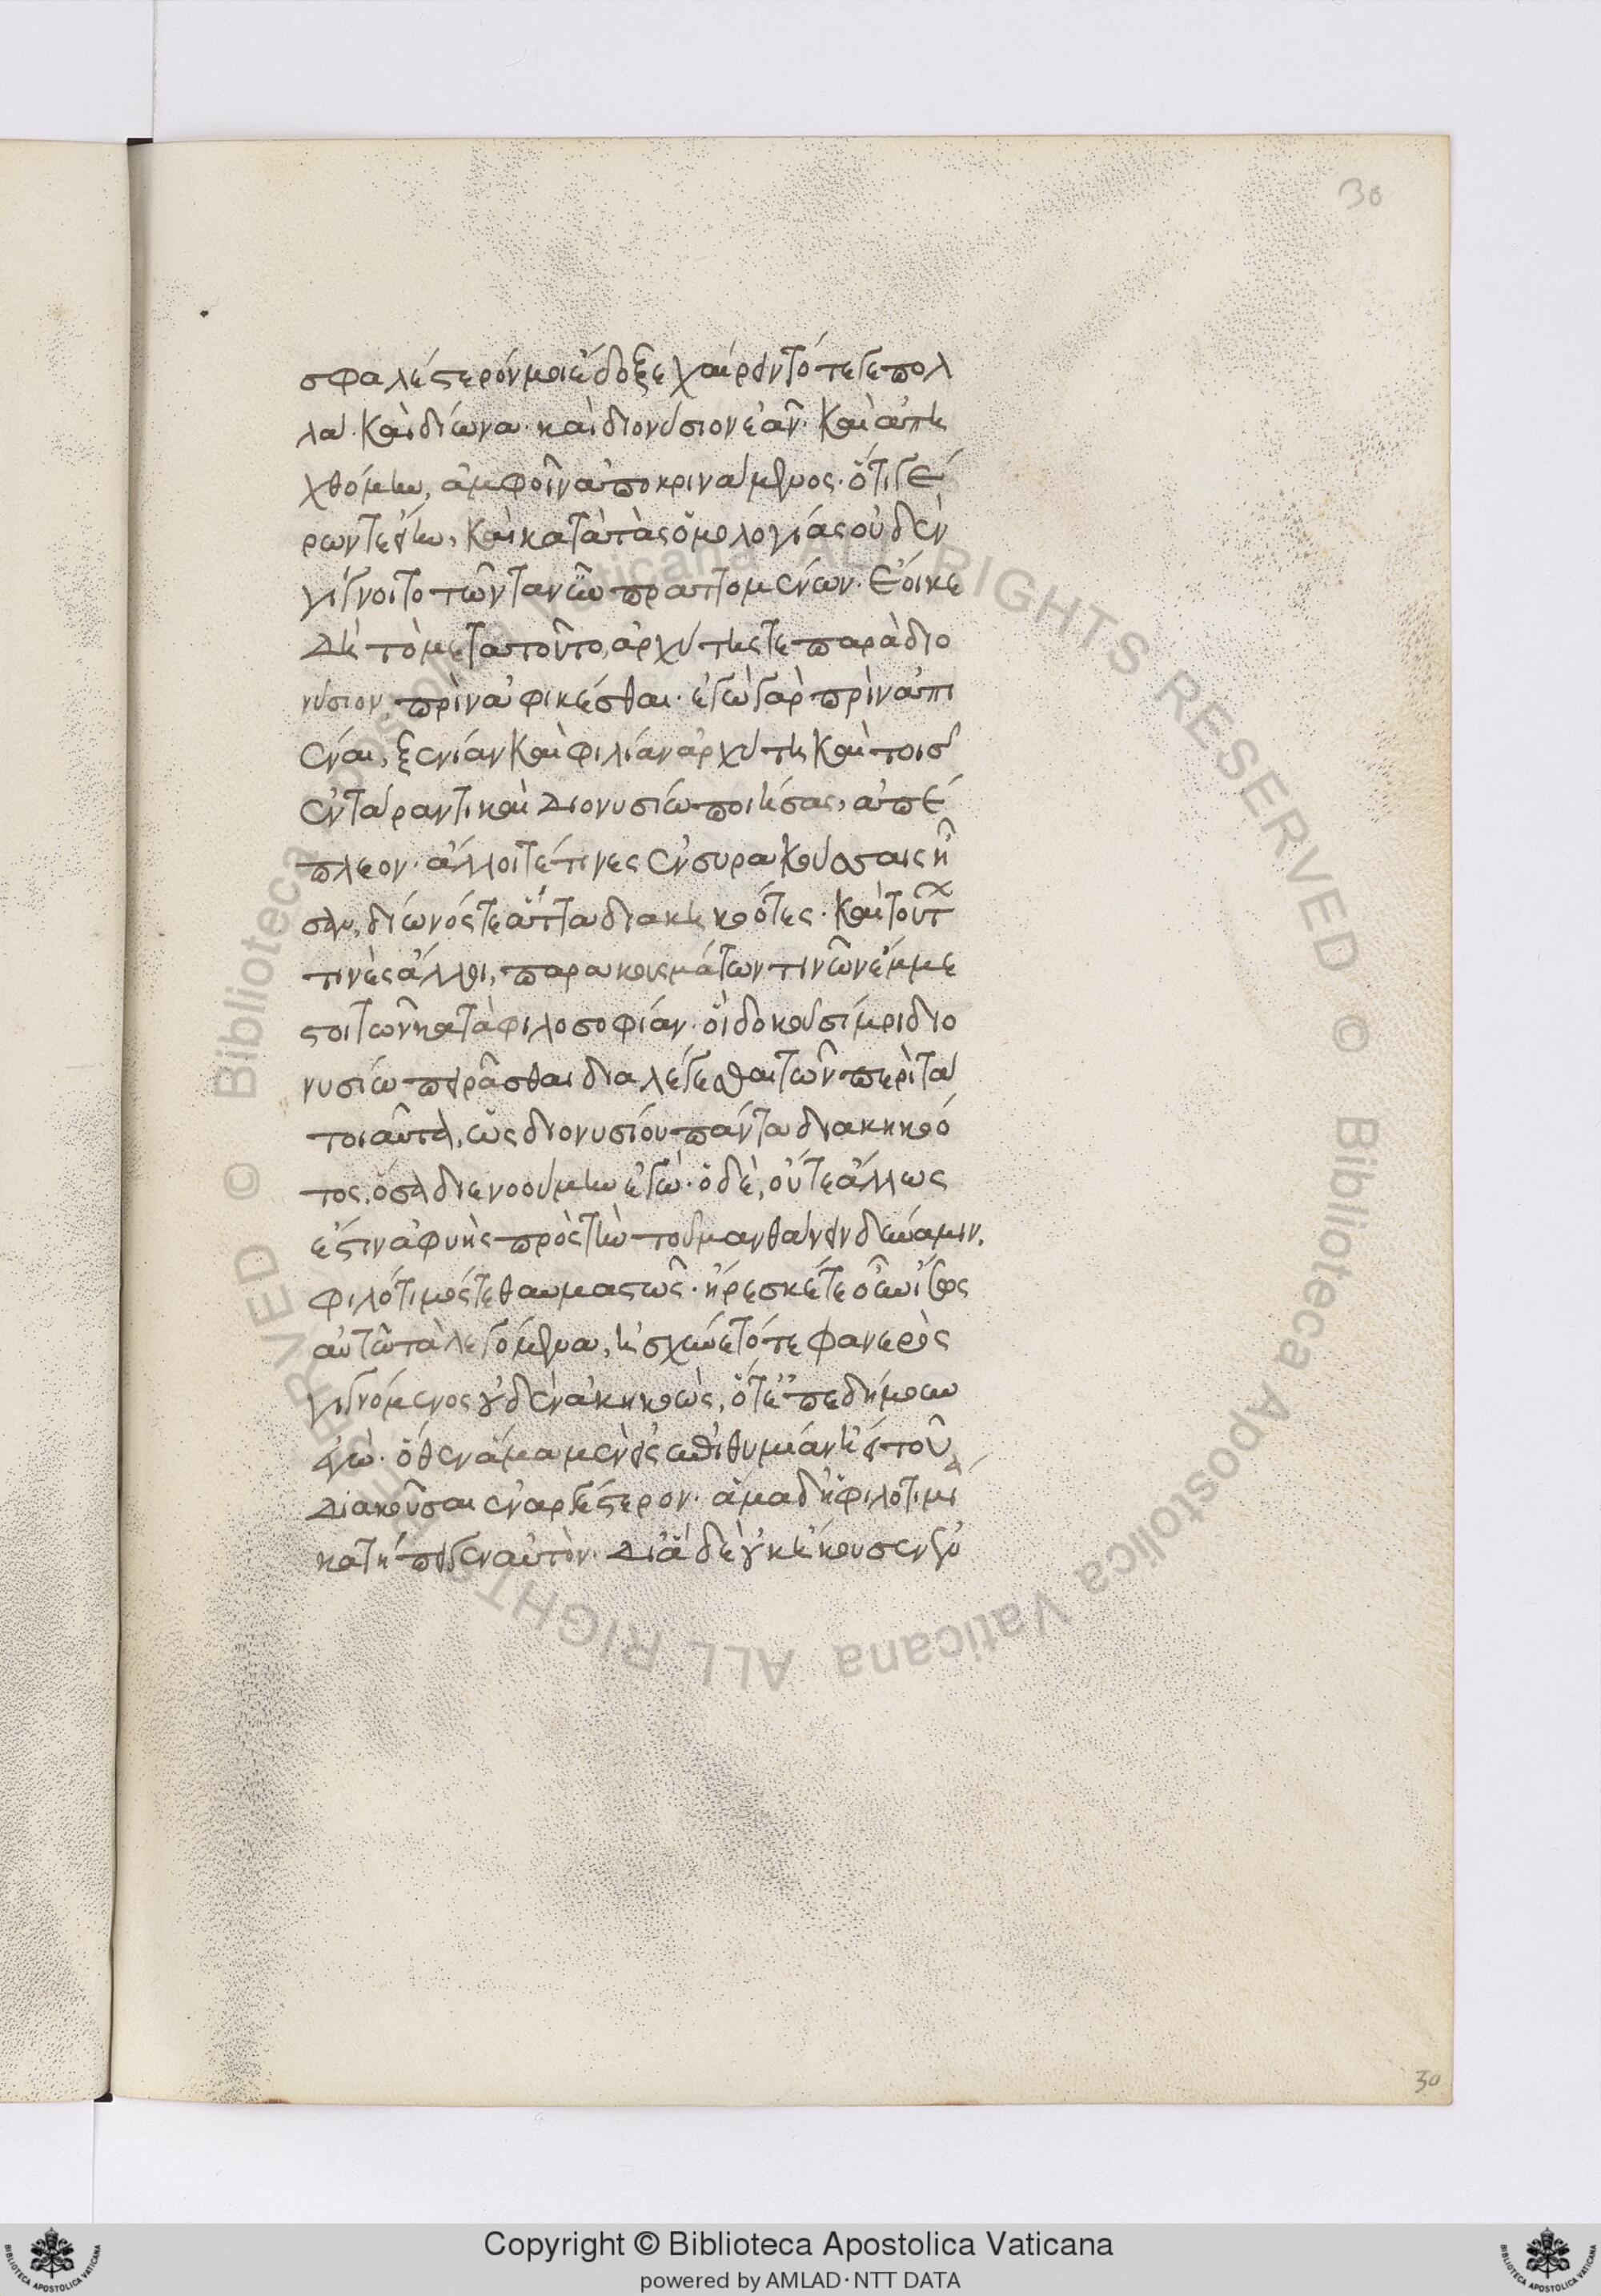 30
σφαλέστερόν μοι ἔδοξε χαίρειν τό τε γε πολ
λὰ καὶ δίωνα καὶ διονύσιον ἐᾶν· καὶ ἀπη
χθόμην, ἀμφοῖν ἀποκρινάμενος· ὅτι γέ
ρων τε εἴην, καὶ κατὰ τὰς ὁμολογίας οὐδὲν
γίγνοιτο τῶν τανῦν πραττομένων· ἔοικε
δὴ τὸ μετὰ τοῦτο, ἀρχύτης τε παρὰ διο
νύσιον πρὶν ἀφικέσθαι· ἐγὼ γὰρ πρὶν ἀπι
έναι, ξενίαν καὶ φιλίαν ἀρχύτη καὶ τοῖς
ἐν τάραντι καὶ Διονυσίω ποιήσας, ἀπέ
πλεον· ἄλλοι τέ τινες ἐν συρακούσαις ἦ
σαν, δίωνός τε ἄττα διακηκοότες· καὶ τούτ
τινὲς ἄλλοι, παρακουσμάτων τινῶν ἔμμε
στοι τῶν κατὰ φιλοσοφίαν· οἳ δοκοῦσί μοι διο
νυσίω πειρᾶσθαι διαλέγεσθαι τῶν περὶ τὰ
τοιαῦτα, ὡς διονυσίου πάντα διακηκοό
τος, ὅσα διενοούμην ἐγώ· ὁ δὲ, οὔτε ἄλλως
ἐστιν ἀφυὴς πρὸς τὴν τοῦ μανθάνειν δύναμιν,
φιλότιμός τε θαυμαστῶς· ἤρεσκέ τε οὖν ἴσως
αὐτῶ τὰ λεγόμενα, ἠσχύνετό τε φανερὸς
γιγνόμενος οὐδὲν ἀκηκοὼς, ὅτ' ἐπεδήμουν
ἐγώ· ὅθεν ἅμα μὲν εἰς ἐπιθυμίαν ἤει τοῦ
διακοῦσαι ἐναργέστερον· ἅμα δ' ἡ φιλοτιμί
α
κατήπειγεν αὐτόν· Δι' ἃ δὲ οὐκ ἤκουσεν ἐν
30
Copyright © Biblioteca Apostolica Vaticana
powered by AMLAD·NTT DATA